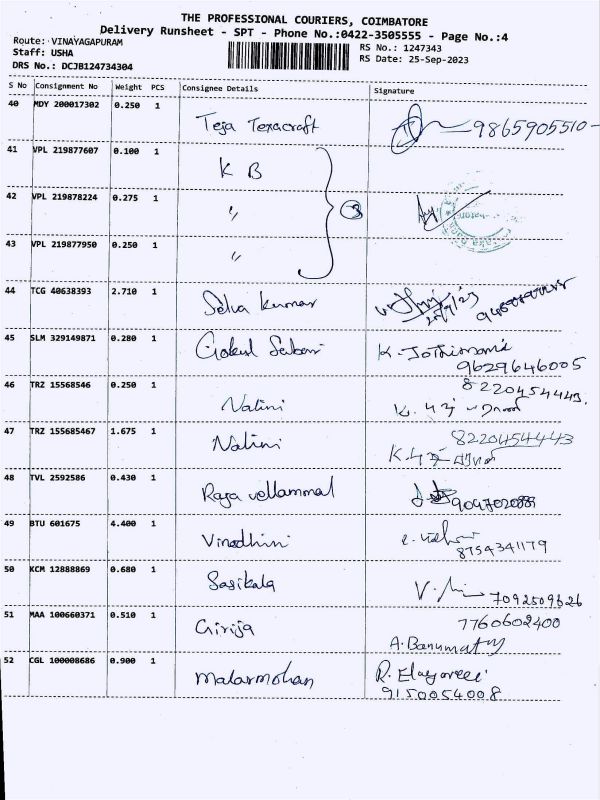 THE PROFESSIONAL COURIERS, COIMBATORE
Delivery Runsheet - SPT - Phone No.:0422-3505555 - Page No.:4
Route: VINAYAGAPURAM
Staff: USHA
DRS No.: DCJB124734304
RS No.: 1247343
RS Date: 25-Sep-2023
S No Consignment No Weight PCS Consignee Details Signature
40 MDY 200017302 0.250 1 Teja Texacraft 9865905510
41 VPL 219877607 0.100 1 K B
42 VPL 219878224 0.275 1 " 3
43 VPL 219877950 0.250 1 "
44 TCG 40638393 2.710 1 Selva Kumar
45 SLM 329149871 0.280 1 Gokul K. Jothimani
9629646005
46 TRZ 15568546 0.250 1 Nalini 8220454443
47 TRZ 155685467 1.675 1 Nalini 8220454443
48 TVL 2592586 0.430 1 Raja vellammal
49 BTU 601675 4.400 1 Vinodhini
8754341179
50 KCM 12888869 0.680 1 Sasikala 7092509626
51 MAA 100660371 0.510 1 Girija 7760602400
A. Banumathy
52 CGL 100008686 0.900 1 Malarmohan R.
9150054008